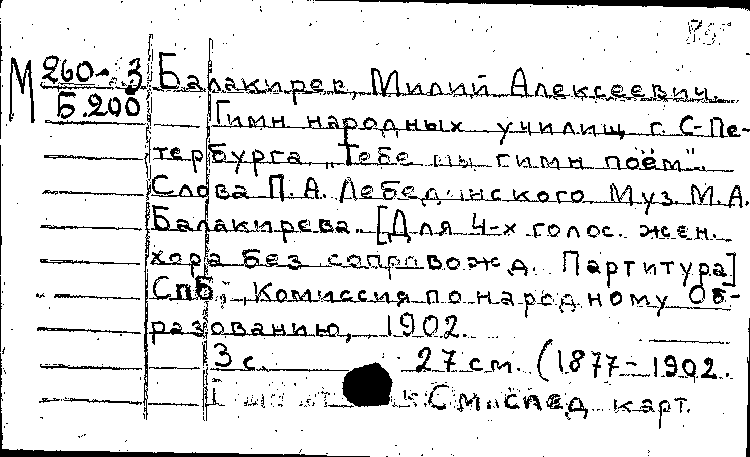 М 260-3 Балакирев, Милий Алексеевич.
Б.200 Гимн народных училищ г. С-Пе-
тербурга „Тебе мы гимн поём".
Слова П.А. Лебединского Муз. М.А.
Балакирева. [Для 4-х голос. жен.
хора без сопровожд. Партитура]
Спб, Комиссия по народному Об-
разованию, 1902.
3 с. 27 см. (1877-1902.
См. след карт.